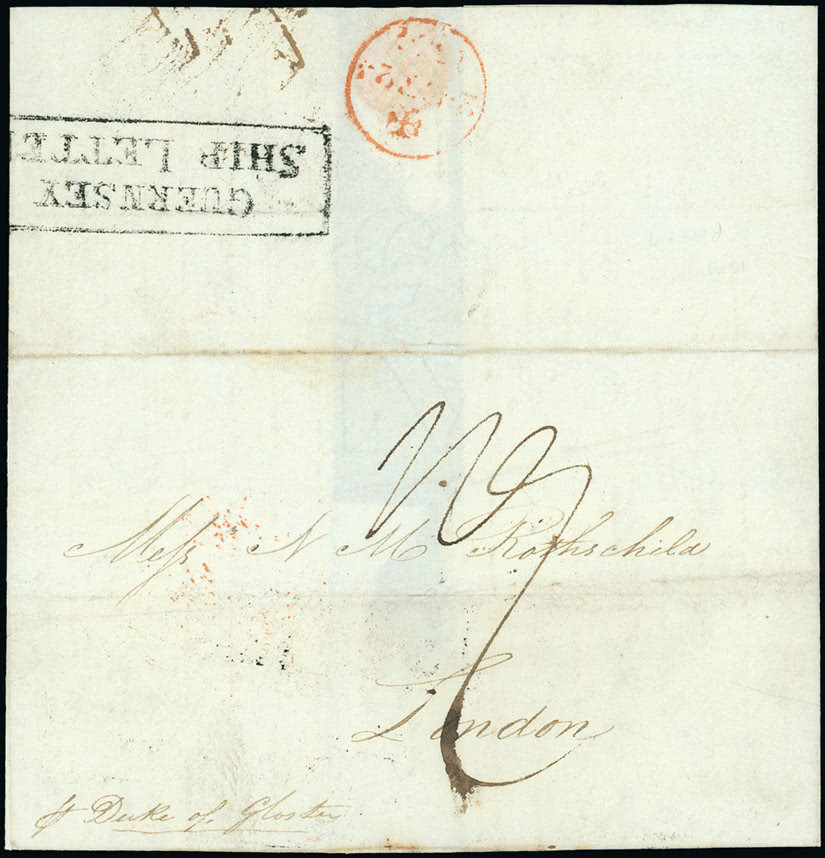 GUERNSEY
SHIP LETTE
Mess N M Rothschild
London
p Duke of Gloster